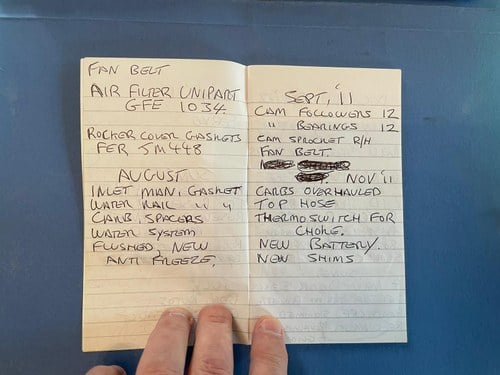 FAN BELT
AIR FILTER UNIPART
GFE 1034.
ROCKER COVER GASKETS
FER JM448
AUGUST
INLET MANI, GASKET
WATER RAIL " "
CARB. SPACERS
WATER SYSTEM
FLUSHED, NEW
ANTI FREEZE,
SEPT, '11
CAM FOLLOWERS 12
" BEARINGS 12
CAM SPROCKET R/H
FAN BELT.
NOV '11
CARBS OVERHAULED
TOP HOSE
THERMOSWITCH FOR
CHOKE.
NEW BATTERY.
NEW SHIMS